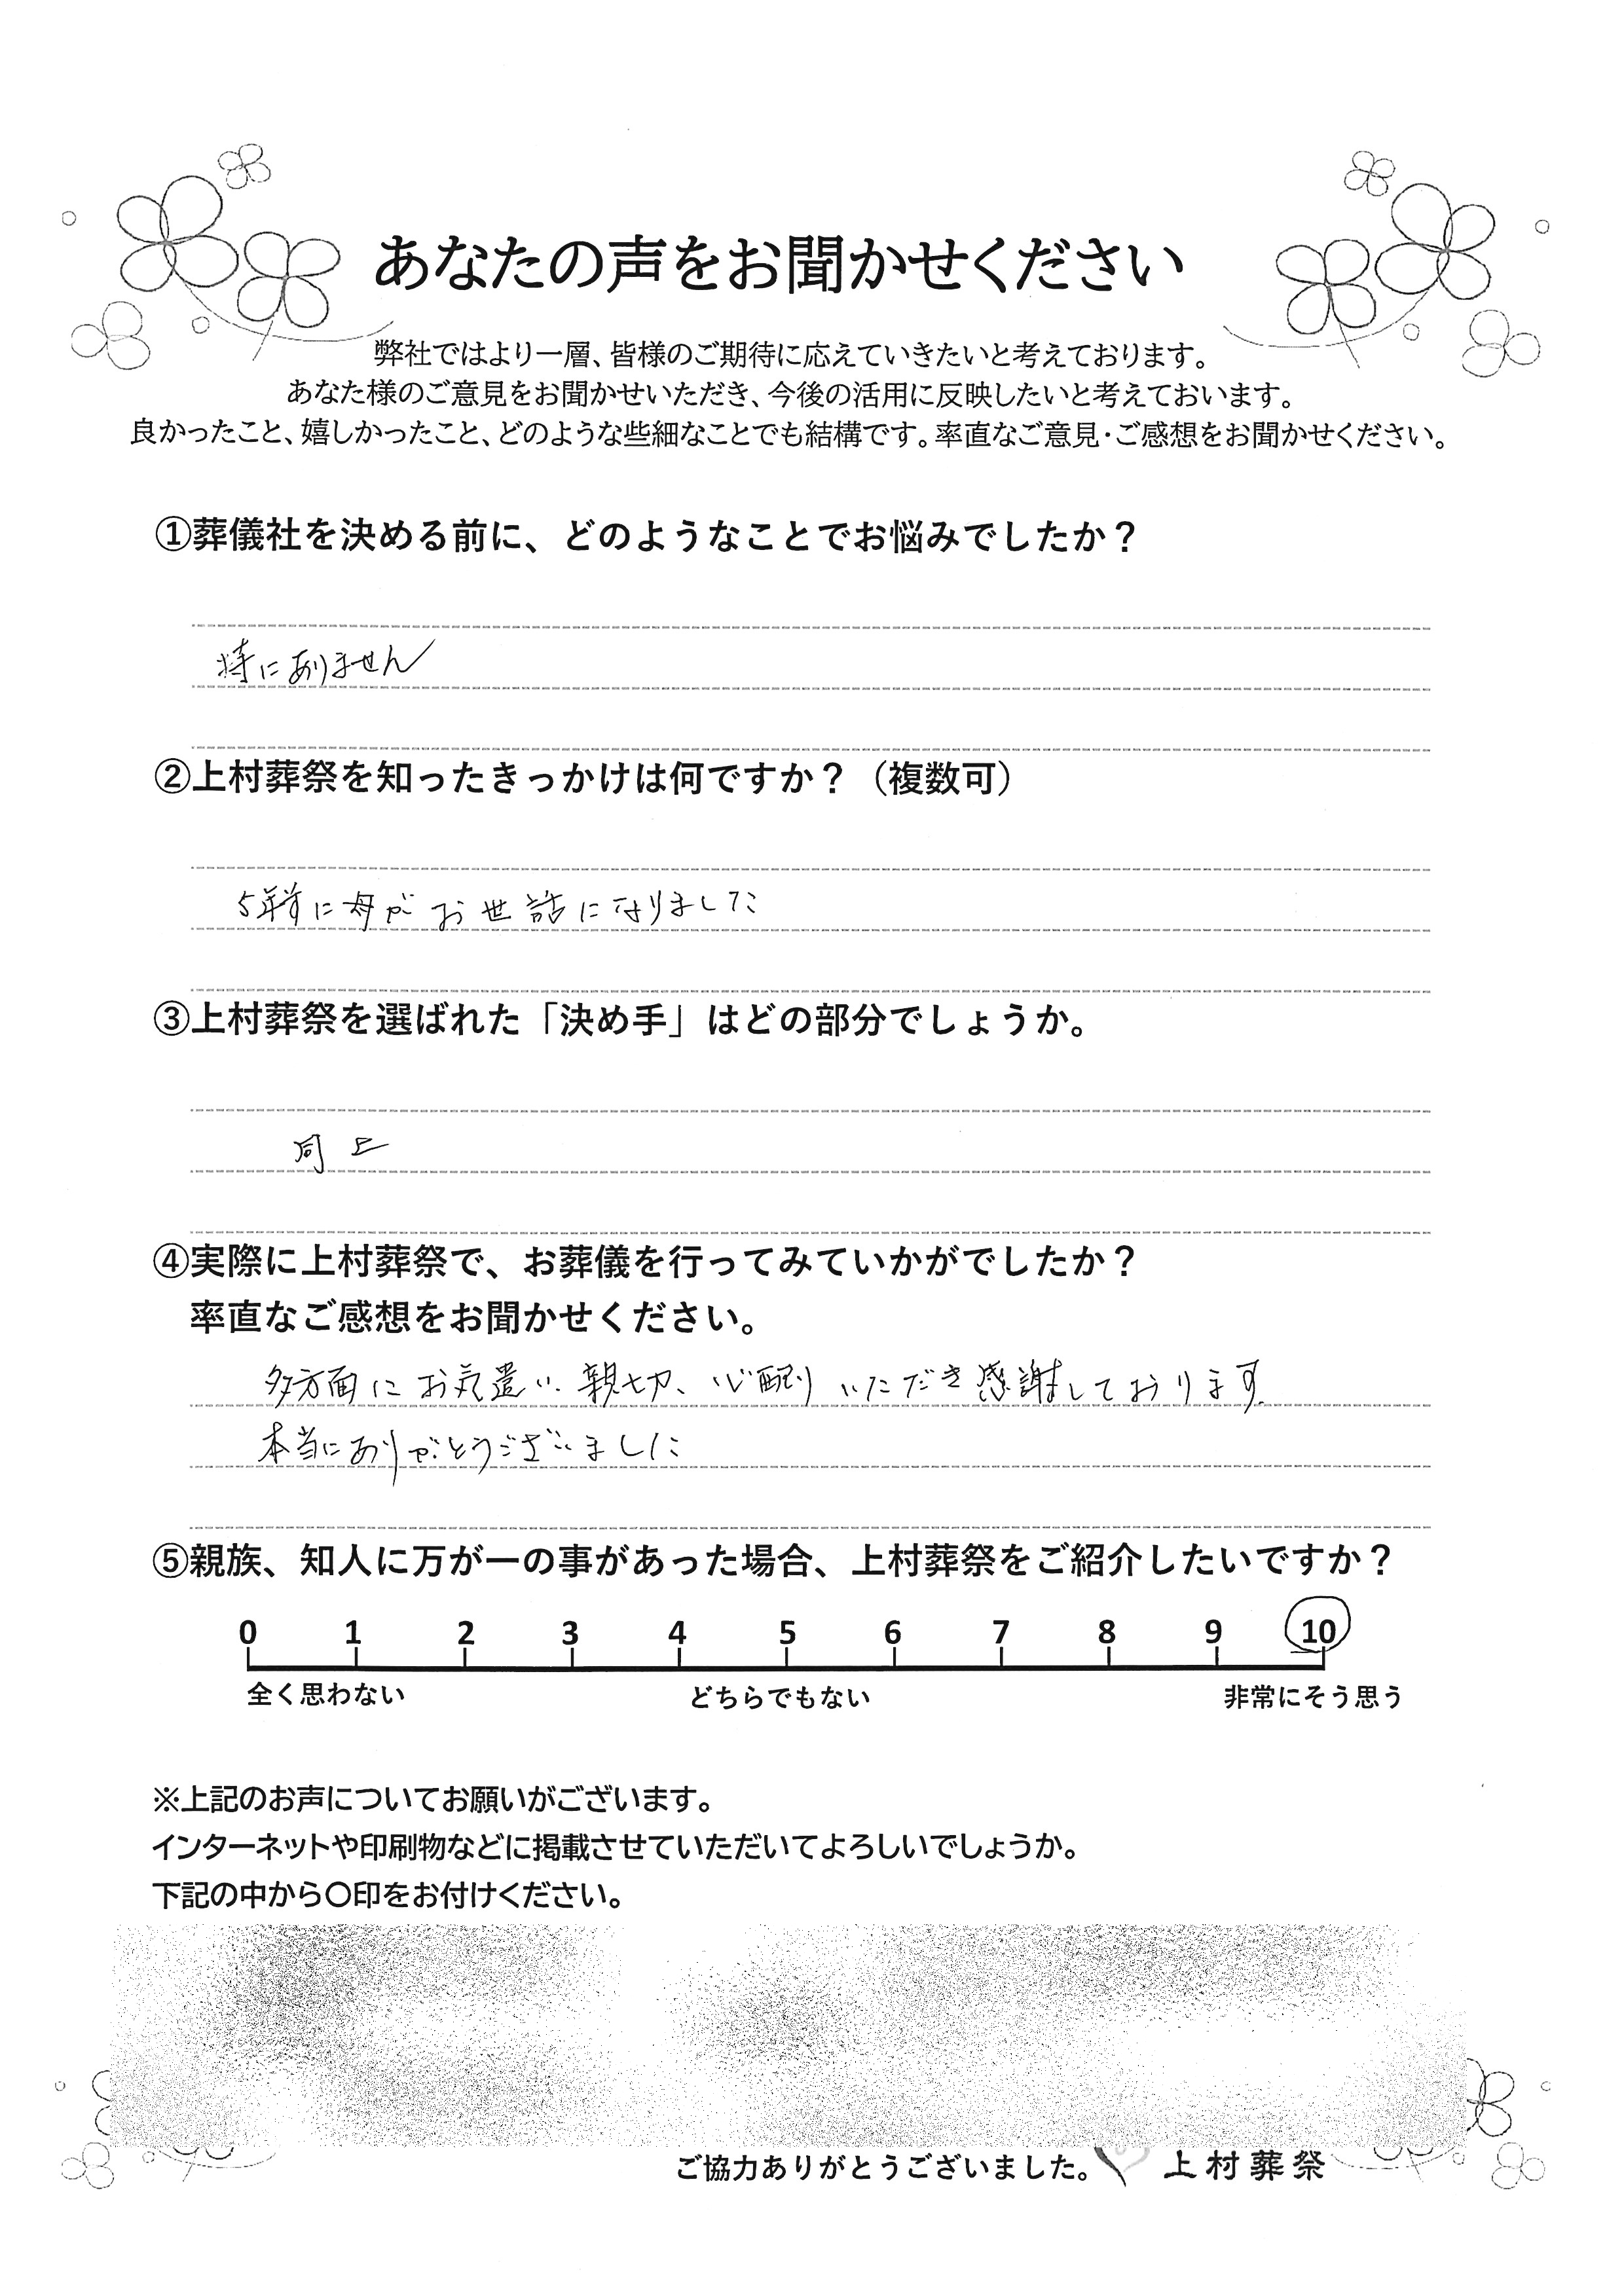 あなたの声をお聞かせください
弊社ではより一層、皆様のご期待に応えていきたいと考えております。
あなた様のご意見をお聞かせいただき、今後の活用に反映したいと考えておいます。
良かったこと、嬉しかったこと、どのような些細なことでも結構です。率直なご意見・ご感想をお聞かせください。
①葬儀社を決める前に、どのようなことでお悩みでしたか？
特にありません
②上村葬祭を知ったきっかけは何ですか？（複数可）
5年前に母がお世話になりました
③上村葬祭を選ばれた「決め手」はどの部分でしょうか。
同上
④実際に上村葬祭で、お葬儀を行ってみていかがでしたか？
率直なご感想をお聞かせください。
多方面にお気遣い、親切、心配りいただき感謝しております。
本当にありがとうございました
⑤親族、知人に万が一の事があった場合、上村葬祭をご紹介したいですか？
0 1 2 3 4 5 6 7 8 9 10
全く思わない どちらでもない 非常にそう思う
※上記のお声についてお願いがございます。
インターネットや印刷物などに掲載させていただいてよろしいでしょうか。
下記の中から〇印をお付けください。
ご協力ありがとうございました。 上村葬祭